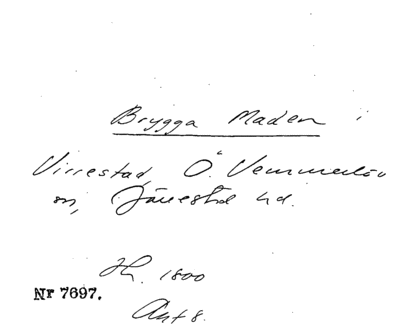 Brygga Maden i
Virrestad, Ö. Vemmerlöv
sn, Järrestad hd.
Hl. 1800
Nr 7697.
Ant 8.